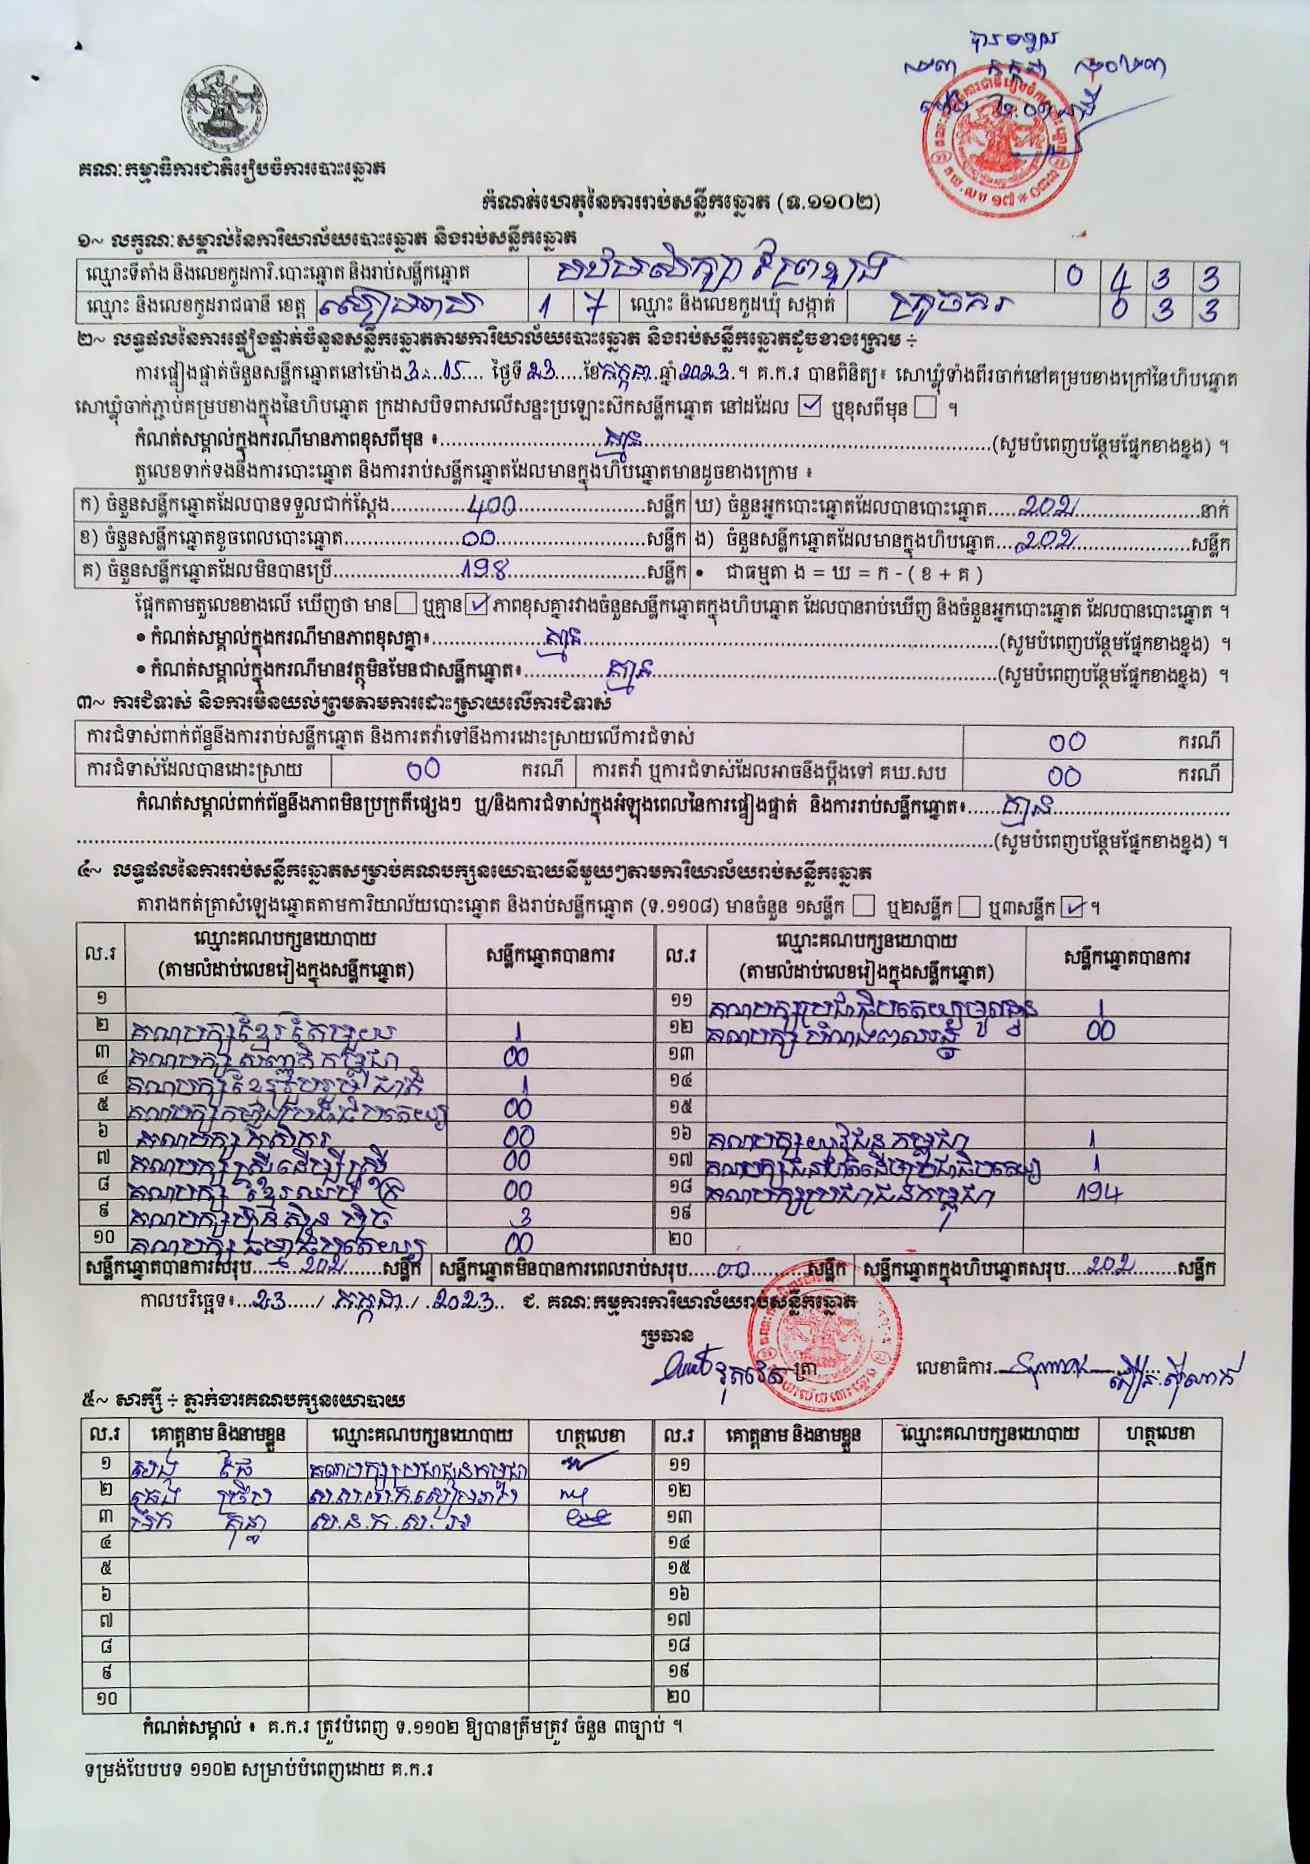 បានទទួល
គណៈកម្មាធិការជាតិរៀបចំការបោះឆ្នោត
កំណត់ហេតុនៃការរាប់សន្លឹកឆ្នោត (ទ.១១០២)
១~ លក្ខណៈសម្គាល់នៃការិយាល័យបោះឆ្នោត និងរាប់សន្លឹកឆ្នោត
ឈ្មោះទីតាំង និងលេខកូដការិ.បោះឆ្នោត និងរាប់សន្លឹកឆ្នោត 0 4 3 3
ឈ្មោះ និងលេខកូដរាជធានី ខេត្ត សៀមរាប 1 7 ឈ្មោះ និងលេខកូដឃុំ សង្កាត់ 0 3 3
២~ លទ្ធផលនៃការផ្ទៀងផ្ទាត់ចំនួនសន្លឹកឆ្នោតតាមការិយាល័យបោះឆ្នោត និងរាប់សន្លឹកឆ្នោតដូចខាងក្រោម ÷
ការផ្ទៀងផ្ទាត់ចំនួនសន្លឹកឆ្នោតនៅម៉ោង 3:15 ថ្ងៃទី 23 ខែ កក្កដា ឆ្នាំ 2023 ។ គ.ក.រ បានពិនិត្យ៖ សោឃ្លុំទាំងពីរចាក់នៅគម្របខាងក្រៅនៃហិបឆ្នោត
សោឃ្លុំចាក់ភ្ជាប់គម្របខាងក្នុងនៃហិបឆ្នោត ក្រដាសបិទពាសលើសន្ទះប្រឡោះស៊កសន្លឹកឆ្នោត នៅដដែល ☑ ឬខុសពីមុន ☐ ។
កំណត់សម្គាល់ក្នុងករណីមានភាពខុសពីមុន ៖ គ្មាន (សូមបំពេញបន្ថែមផ្នែកខាងខ្នង) ។
តួលេខទាក់ទងនឹងការបោះឆ្នោត និងការរាប់សន្លឹកឆ្នោតដែលមានក្នុងហិបឆ្នោតមានដូចខាងក្រោម ៖
ក) ចំនួនសន្លឹកឆ្នោតដែលបានទទួលជាក់ស្តែង 400 សន្លឹក ឃ) ចំនួនអ្នកបោះឆ្នោតដែលបានបោះឆ្នោត 202 នាក់
ខ) ចំនួនសន្លឹកឆ្នោតខូចពេលបោះឆ្នោត 00 សន្លឹក ង) ចំនួនសន្លឹកឆ្នោតដែលមានក្នុងហិបឆ្នោត 202 សន្លឹក
គ) ចំនួនសន្លឹកឆ្នោតដែលមិនបានប្រើ 198 សន្លឹក • ជាធម្មតា ង = ឃ = ក - ( ខ + គ )
ផ្អែកតាមតួលេខខាងលើ ឃើញថា មាន ☐ ឬគ្មាន ☑ ភាពខុសគ្នារវាងចំនួនសន្លឹកឆ្នោតក្នុងហិបឆ្នោត ដែលបានរាប់ឃើញ និងចំនួនអ្នកបោះឆ្នោត ដែលបានបោះឆ្នោត ។
• កំណត់សម្គាល់ក្នុងករណីមានភាពខុសគ្នា៖ គ្មាន (សូមបំពេញបន្ថែមផ្នែកខាងខ្នង) ។
• កំណត់សម្គាល់ក្នុងករណីមានវត្ថុមិនមែនជាសន្លឹកឆ្នោត៖ គ្មាន (សូមបំពេញបន្ថែមផ្នែកខាងខ្នង) ។
៣~ ការជំទាស់ និងការមិនយល់ព្រមតាមការដោះស្រាយលើការជំទាស់
ការជំទាស់ពាក់ព័ន្ធនឹងការរាប់សន្លឹកឆ្នោត និងការតវ៉ាទៅនឹងការដោះស្រាយលើការជំទាស់ 00 ករណី
ការជំទាស់ដែលបានដោះស្រាយ 00 ករណី ការតវ៉ា ឬការជំទាស់ដែលអាចនឹងប្តឹងទៅ គឃ.សប 00 ករណី
កំណត់សម្គាល់ពាក់ព័ន្ធនឹងភាពមិនប្រក្រតីផ្សេងៗ ឬ/និងការជំទាស់ក្នុងអំឡុងពេលនៃការផ្ទៀងផ្ទាត់ និងការរាប់សន្លឹកឆ្នោត៖ គ្មាន
(សូមបំពេញបន្ថែមផ្នែកខាងខ្នង) ។
៤~ លទ្ធផលនៃការរាប់សន្លឹកឆ្នោតសម្រាប់គណបក្សនយោបាយនីមួយៗតាមការិយាល័យរាប់សន្លឹកឆ្នោត
តារាងកត់ត្រាសំឡេងឆ្នោតតាមការិយាល័យបោះឆ្នោត និងរាប់សន្លឹកឆ្នោត (ទ.១១០៨) មានចំនួន ១សន្លឹក ☐ ឬ២សន្លឹក ☐ ឬ៣សន្លឹក ☑ ។
ល.រ ឈ្មោះគណបក្សនយោបាយ (តាមលំដាប់លេខរៀងក្នុងសន្លឹកឆ្នោត) សន្លឹកឆ្នោតបានការ ល.រ ឈ្មោះគណបក្សនយោបាយ (តាមលំដាប់លេខរៀងក្នុងសន្លឹកឆ្នោត) សន្លឹកឆ្នោតបានការ
១ ១១ គណបក្សប្រជាធិបតេយ្យមូលដ្ឋាន 1
២ គណបក្សខ្មែរតែមួយ 1 ១២ គណបក្ស 00
៣ គណបក្សសញ្ជាតិកម្ពុជា 00 ១៣
៤ គណបក្សខ្មែររួបរួមជាតិ 1 ១៤
៥ គណបក្សកម្លាំងប្រជាធិបតេយ្យ 00 ១៥
៦ គណបក្សកសិករ 00 ១៦ គណបក្សយុវជនកម្ពុជា 1
៧ គណបក្សស្ត្រីដើម្បីស្ត្រី 00 ១៧ 1
៨ គណបក្ស 00 ១៨ គណបក្សប្រជាជនកម្ពុជា 194
៩ គណបក្សហ៊្វុនស៊ិនប៉ិច 3 ១៩
១០ គណបក្សធម្មាធិបតេយ្យ 00 ២០
សន្លឹកឆ្នោតបានការសរុប 202 សន្លឹក សន្លឹកឆ្នោតមិនបានការពេលរាប់សរុប 00 សន្លឹក សន្លឹកឆ្នោតក្នុងហិបឆ្នោតសរុប 202 សន្លឹក
កាលបរិច្ឆេទ៖ 23 / កក្កដា / 2023 ជ. គណៈកម្មការការិយាល័យរាប់សន្លឹកឆ្នោត
ប្រធាន
ត្រា លេខាធិការ
៥~ សាក្សី ÷ ភ្នាក់ងារគណបក្សនយោបាយ
ល.រ គោត្តនាម និងនាមខ្លួន ឈ្មោះគណបក្សនយោបាយ ហត្ថលេខា ល.រ គោត្តនាម និងនាមខ្លួន ឈ្មោះគណបក្សនយោបាយ ហត្ថលេខា
១ គណបក្សប្រជាជនកម្ពុជា ១១
២ ១២
៣ ១៣
៤ ១៤
៥ ១៥
៦ ១៦
៧ ១៧
៨ ១៨
៩ ១៩
១០ ២០
កំណត់សម្គាល់ ៖ គ.ក.រ ត្រូវបំពេញ ទ.១១០២ ឱ្យបានត្រឹមត្រូវ ចំនួន ៣ច្បាប់ ។
ទម្រង់បែបបទ ១១០២ សម្រាប់បំពេញដោយ គ.ក.រ